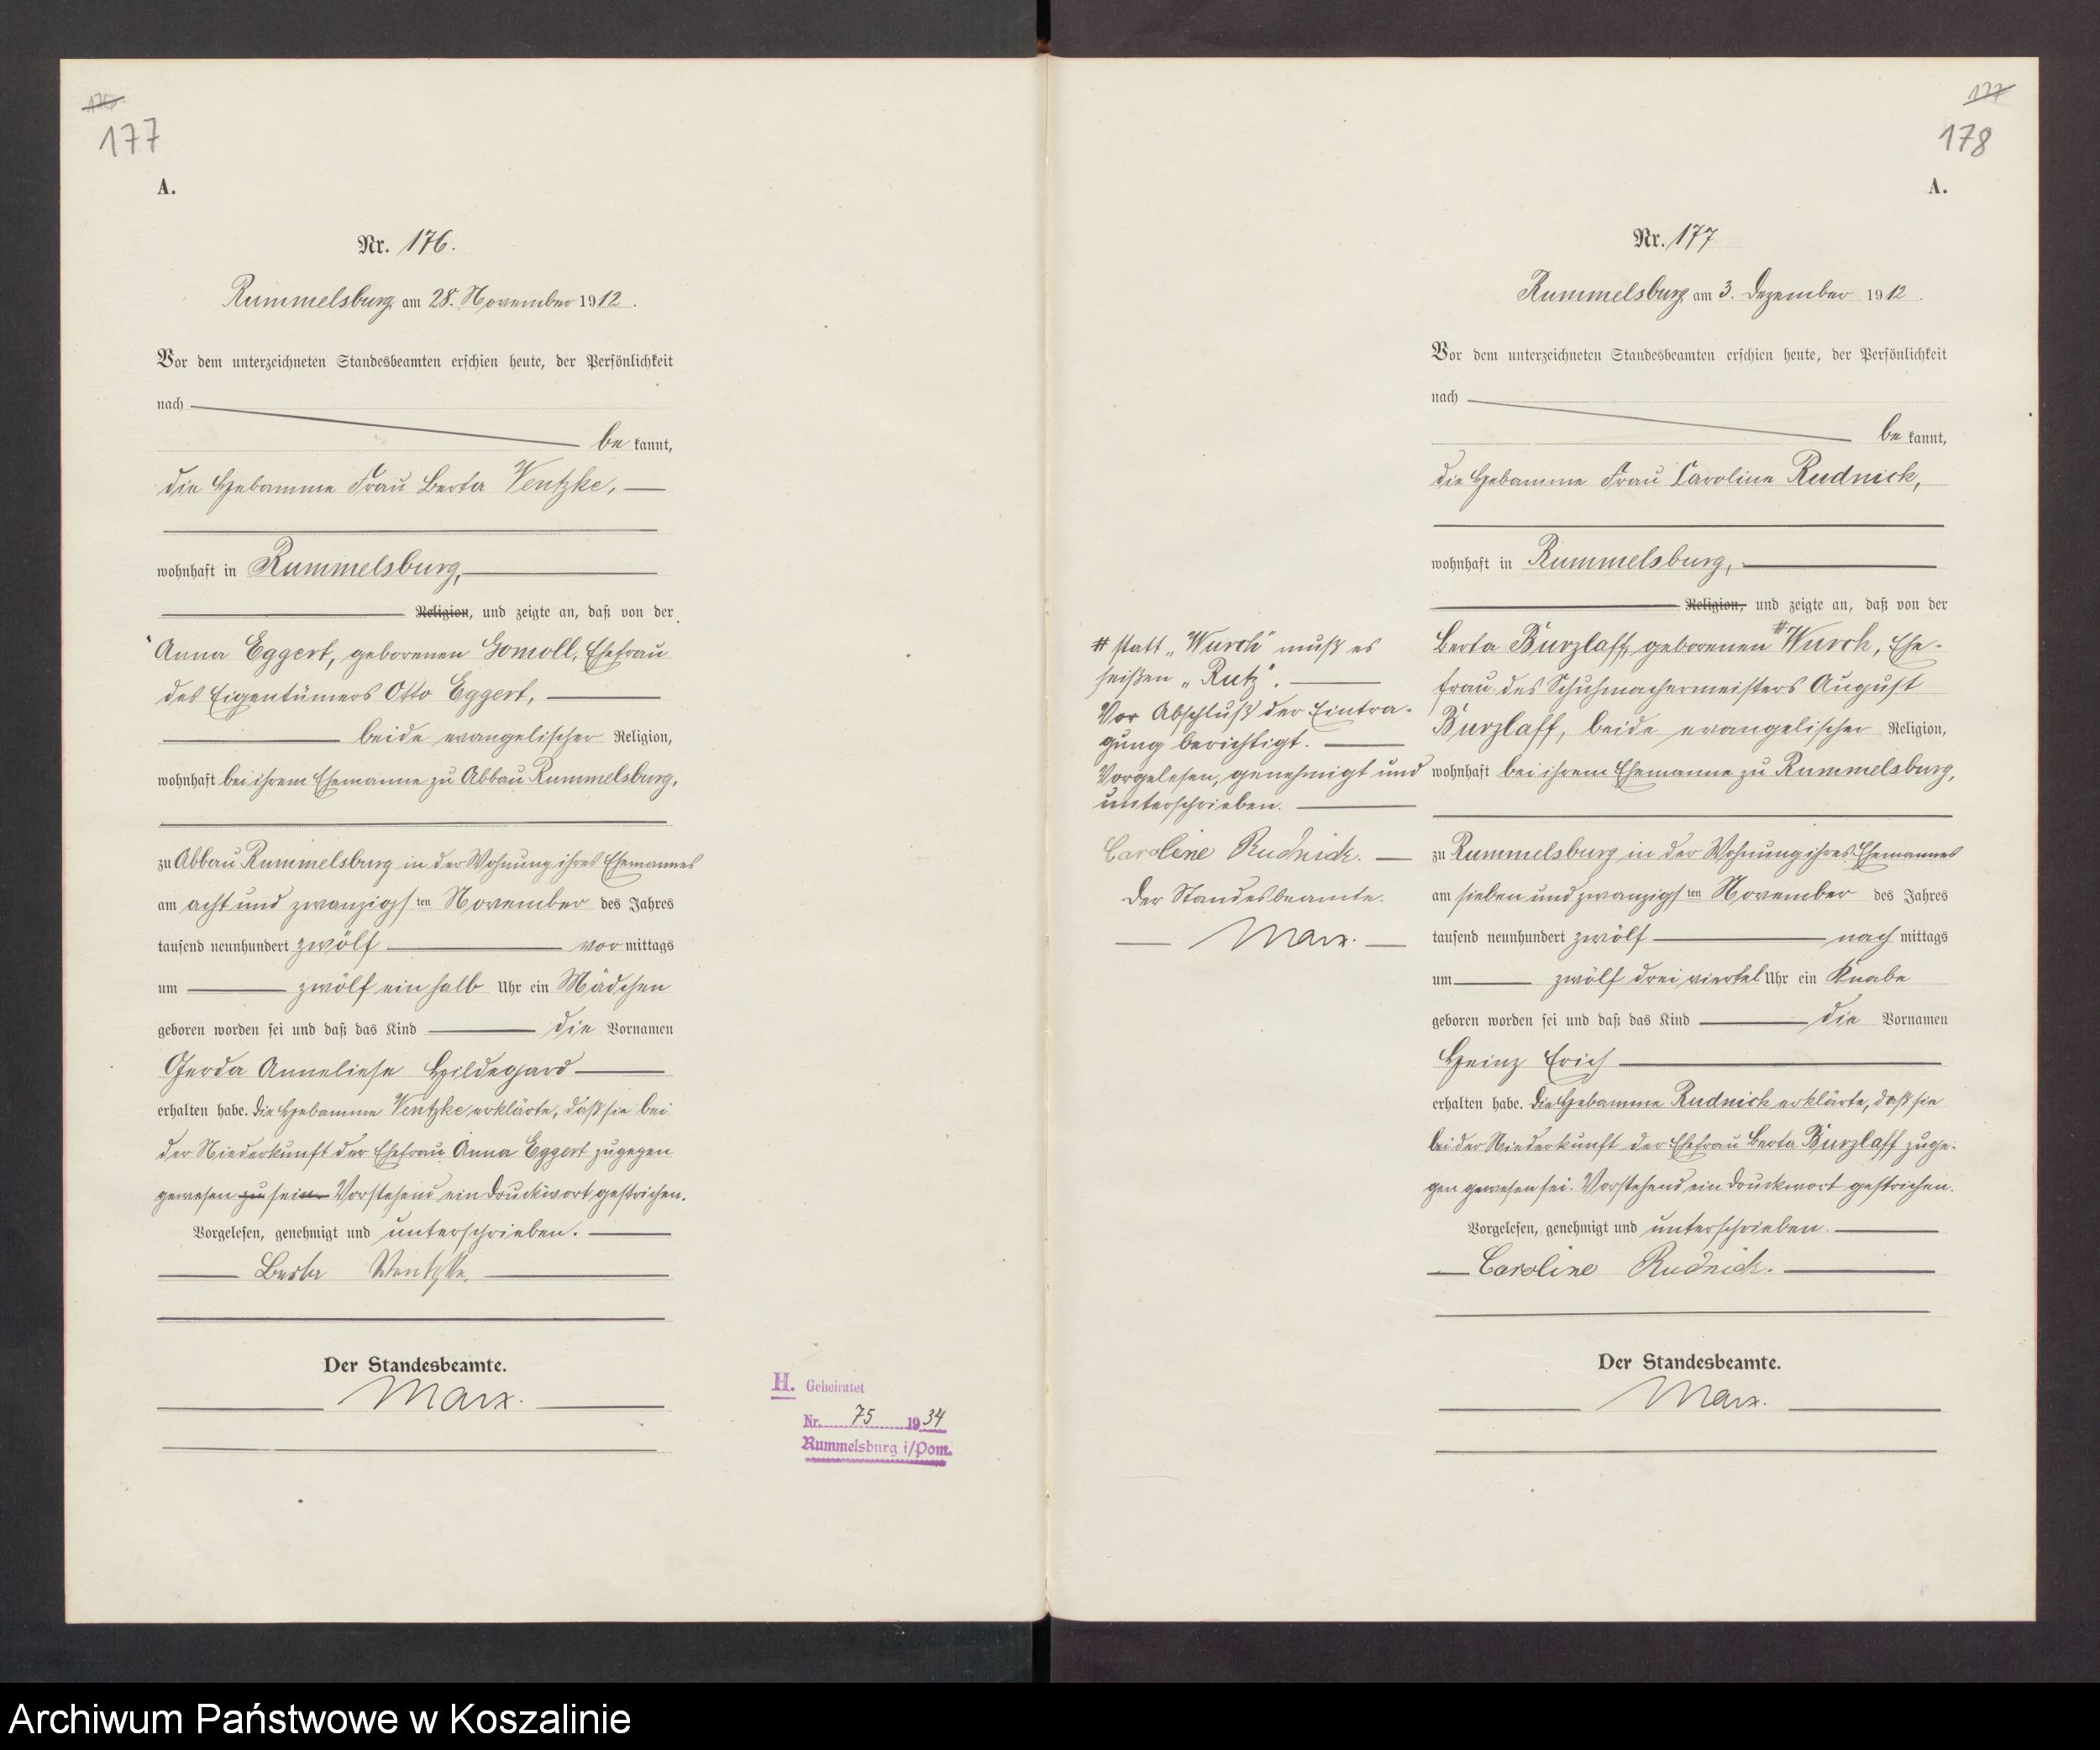 176
177
A.
Nr. 176.
Rummelsburg am 28. November 1912.
Vor dem unterzeichneten Standesbeamten erschien heute, der Persönlichkeit
nach
be kannt,
die Hebamme Frau Berta Ventzke,
wohnhaft in Rummelsburg,
Religion, und zeigte an, daß von der
Anna Eggert, geborenen Gomoll, Ehefrau
des Eigentümers Otto Eggert,
beide evangelischer Religion,
wohnhaft bei ihrem Ehemanne zu Abbau Rummelsburg,
zu Abbau Rummelsburg in der Wohnung ihres Ehemannes
am acht und zwanzigsten November des Jahres
tausend neunhundert zwölf vor mittags
um zwölf ein halb Uhr ein Mädchen
geboren worden sei und daß das Kind die Vornamen
Gerda Anneliese Hildegard
erhalten habe. Die Hebamme Ventzke erklärte, daß sie bei
der Niederkunft der Ehefrau Anna Eggert zugegen
gewesen zu sein. Vorstehend ein Druckwort gestrichen.
Vorgelesen, genehmigt und unterschrieben.
Berta Ventzke.
Der Standesbeamte.
Marx.
H. Geheiratet
Nr. 75 1934
Rummelsburg i/Pom.
177
178
A.
Nr. 177
Rummelsburg am 3. Dezember 1912.
Vor dem unterzeichneten Standesbeamten erschien heute, der Persönlichkeit
nach
be kannt,
die Hebamme Frau Caroline Rudnick,
wohnhaft in Rummelsburg,
Religion, und zeigte an, daß von der
Berta Burzlaff, geborenen # Wurch, Ehe-
frau des Schuhmachermeisters August
Burzlaff, beide evangelischer Religion,
wohnhaft bei ihrem Ehemanne zu Rummelsburg,
zu Rummelsburg in der Wohnung ihres Ehemannes
am sieben und zwanzigsten November des Jahres
tausend neunhundert zwölf nach mittags
um zwölf drei viertel Uhr ein Knabe
geboren worden sei und daß das Kind die Vornamen
Heinz Erich
erhalten habe. Die Hebamme Rudnick erklärte, daß sie
bei der Niederkunft der Ehefrau Berta Burzlaff zuge-
gen gewesen sei. Vorstehend ein Druckwort gestrichen.
Vorgelesen, genehmigt und unterschrieben.
Caroline Rudnick.
Der Standesbeamte.
Marx.
# statt "Wurch" muß es
heißen "Rutz".
Vor Abschluß der Eintra-
gung berichtigt.
Vorgelesen, genehmigt und
unterschrieben.
Caroline Rudnick.
Der Standesbeamte.
Marx.
Archiwum Państwowe w Koszalinie